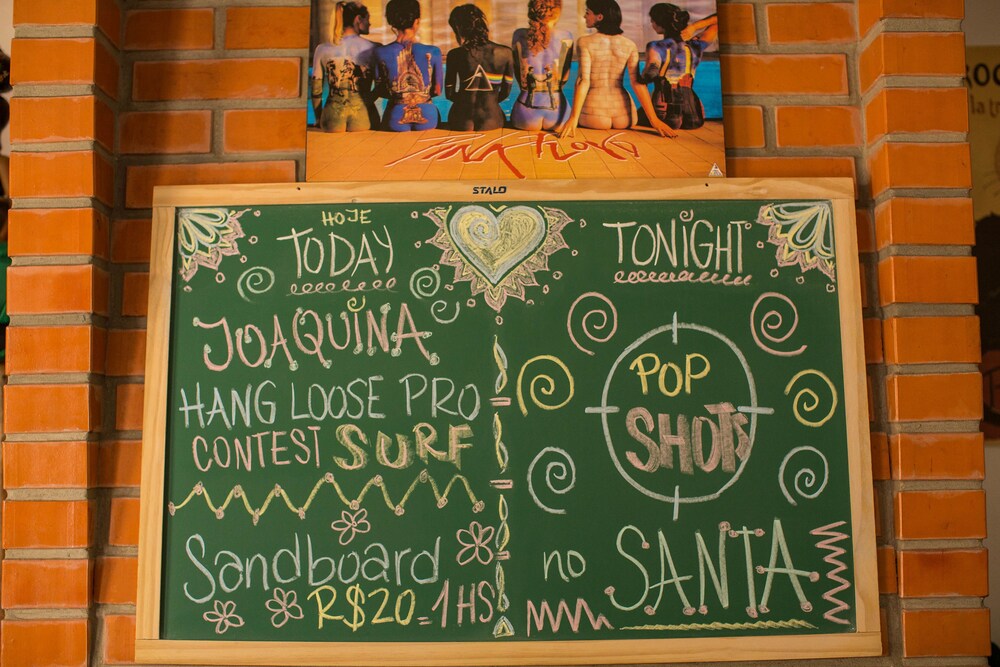 PINK FLOYD
STALO
HOJE
TODAY
JOAQUINA
HANG LOOSE PRO
CONTEST SURF
Sandboard
R$20=1HS
TONIGHT
POP
SHOTS
no SANTA